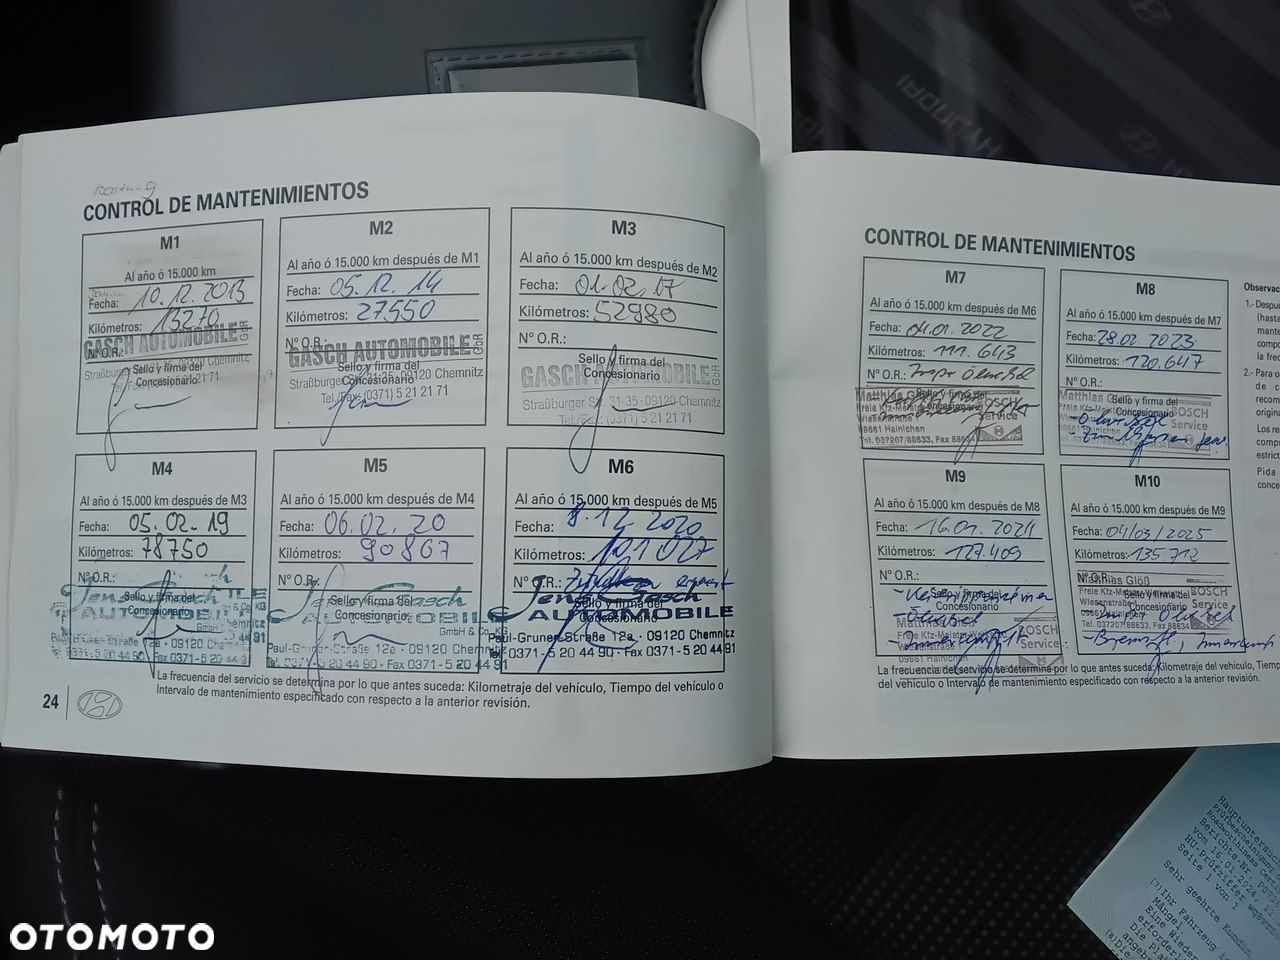 CONTROL DE MANTENIMIENTOS
M1
Al año ó 15.000 km
Fecha: 10.12.2013
Kilómetros: 13270
Nº O.R.:
GASCH AUTOMOBILE GbR
Sello y firma del
Concesionario
Straßburger 09120 Chemnitz
5 21 21 71
M2
Al año ó 15.000 km después de M1
Fecha: 05.12.14
Kilómetros: 27550
Nº O.R.:
GASCH AUTOMOBILE GbR
Sello y firma del
Concesionario
Straßburger Str. 31-35 · 09120 Chemnitz
Tel./Fax: (0371) 5 21 21 71
M3
Al año ó 15.000 km después de M2
Fecha: 01.02.17
Kilómetros: 52980
Nº O.R.:
Sello y firma del
Concesionario
GASCH AUTOMOBILE GbR
Straßburger Str. 31-35 · 09120 Chemnitz
Tel./Fax: (0371) 5 21 21 71
M4
Al año ó 15.000 km después de M3
Fecha: 05.02.19
Kilómetros: 78750
Nº O.R.:
Jens Gasch
Sello y firma del
AUTOMOBILE
Concesionario
GmbH & Co. KG
Straße 12a · 09120 Chemnitz
Tel. 0371-5 20 44 90 · Fax 0371-5 20 44 91
M5
Al año ó 15.000 km después de M4
Fecha: 06.02.20
Kilómetros: 90867
Nº O.R.:
Jens Gasch
Sello y firma del
AUTOMOBILE
Concesionario
GmbH & Co. KG
Paul-Gruner-Straße 12a · 09120 Chemnitz
Tel. 0371-5 20 44 90 · Fax 0371-5 20 44 91
M6
Al año ó 15.000 km después de M5
Fecha: 8.12.2020
Kilómetros: 101027
Nº O.R.:
Jens Gasch
Sello y firma del
AUTOMOBILE
Concesionario
Paul-Gruner-Straße 12a · 09120 Chemnitz
Tel. 0371-5 20 44 90 · Fax 0371-5 20 44 91
La frecuencia del servicio se determina por lo que antes suceda: Kilometraje del vehículo, Tiempo del vehículo o
Intervalo de mantenimiento especificado con respecto a la anterior revisión.
24
CONTROL DE MANTENIMIENTOS
M7
Al año ó 15.000 km después de M6
Fecha: 04.01.2022
Kilómetros: 111.643
Nº O.R.:
Sello y firma del
Matthias
Concesionario
BOSCH
Service
09661 Hainichen
Tel. 037207/88633, Fax 88634
M8
Al año ó 15.000 km después de M7
Fecha: 28.02.2023
Kilómetros: 120.647
Nº O.R.:
Sello y firma del
Matthias
Concesionario
BOSCH
Service
Tel. 037207/88633, Fax 88634
M9
Al año ó 15.000 km después de M8
Fecha: 16.01.2024
Kilómetros: 127.409
Nº O.R.:
Sello y firma del
Concesionario
BOSCH
Service
09661 Hainichen
M10
Al año ó 15.000 km después de M9
Fecha: 04/03/2025
Kilómetros: 135.712
Nº O.R.:
Matthias Glöß
Sello y firma del
Concesionario
BOSCH
Service
09661 Hainichen
Tel. 037207/88633, Fax 88634
La frecuencia del servicio se determina por lo que antes suceda: Kilometraje del vehículo, Tiemp
del vehículo o Intervalo de mantenimiento especificado con respecto a la anterior revisión.
Observac
1.- Despué
(hasta
2.- Para o
de c
recom
origin
Los re
comp
estrict
Pida
conce
HYUNDAI
Hauptuntersu
Prüfbescheinigung
Roadworthiness Cer
Berichts-Nr.
vom 16.01.2024,
HU-Prüfziffer
Seite 1 von 1
Sehr geehrte Kundin
(7)Ihr Fahrzeug
Mängel.
Eine Wiede
erforderl
Die Pla
angeba
(8)Die
OTOMOTO